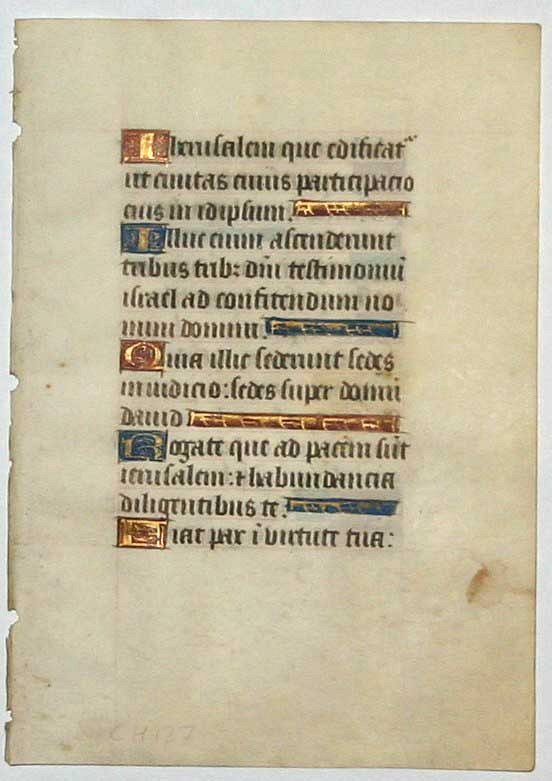 Iherusalem que edificatᵘʳ
ut civitas cuius participacio
eius in idipsum.
Illuc enim ascenderunt
tribus trib: dñi testimoniũ
israel ad confitendum no
mini domini.
Quia illic sederunt sedes
in iudicio: sedes super domũ
david
Rogate que ad pacem sũt
ierusalem: et habundancia
diligentibus te.
Fiat pax ĩ virtute tua:
CH 127